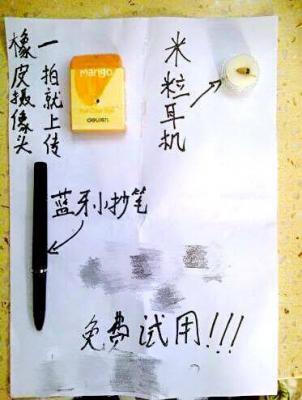 橡皮摄像头
一拍就上传
mango
deli
米粒耳机
蓝牙小抄笔
免费试用!!!